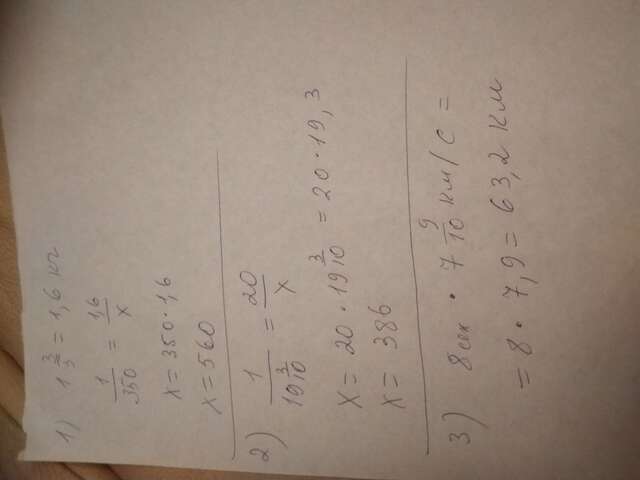 1) 1 3/5 = 1,6 кг
1/350 = 1,6/x
x = 350 · 1,6
x = 560
2) 1/19 3/10 = 20/x
x = 20 · 19 3/10 = 20 · 19,3
x = 386
3) 8 сек · 7 9/10 км/с =
= 8 · 7,9 = 63,2 км